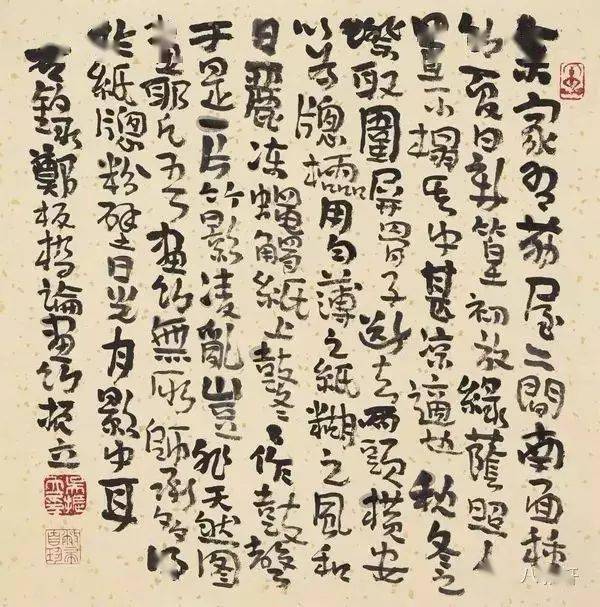 余家有茅屋二間南面種
竹夏日新篁初放綠蔭照人
置一小榻其中甚涼適也秋冬之
際取圍屏骨子斷去兩頭橫安
以為窻櫺用勻薄之紙糊之風和
日麗凍蠅觸紙上鼕〻作鼓聲
于是一片竹影凌亂豈非天然图
畫耶凡吾畫竹無所師承多得
於紙窻粉壁日光月影中耳
右錄鄭板橋論畫竹振立